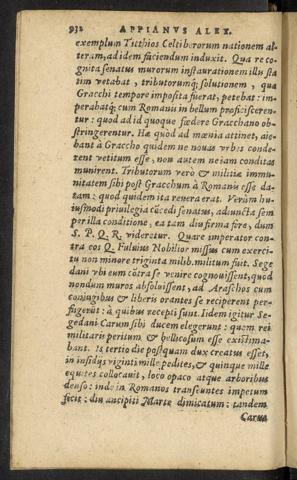 932 APPIANVS ALEX.
exemplum Titthios Celtiberorum nationem al-
teram, ad idem faciendum induxit. Qua re co-
gnita senatus murorum instaurationem illis sta
tim vetabat, tributorumq; solutionem, qua
Gracchi tempore imposita fuerat, petebat: im-
perabatq; cum Romanis in bellum proficisceren-
tur: quod ad id quoque fœdere Gracchano ob-
stringerentur. Hæ quod ad mœnia attinet, aie-
bant à Graccho quidem ne nouas vrbes conde-
rent vetitum esse, non autem ne iam conditas
munirent. Tributorum verò & militiæ immu-
nitatem sibi post Gracchum à Romanis esse da-
tam: quod quidem ita reuera erat. Verùm hu
iusmodi priuilegia cũcedi senatus, adiuncta sem
per illa conditione, ea tam diu firma fire, dum
S. P. Q. R. videretur. Quare imperator con-
tra eos Q. Fuluius Nobilior missus cum exerci-
tu non minore triginta milib. militum fuit. Sege
dani vbi eum cõtra se venire cognouissent, quòd
nondum muros absoluissent, ad Araschos cum
coniugibus & liberis orantes se reciperent per-
fugerūt: à quibus recepti sunt. Iidem igitur Se-
gedani Carum sibi ducem elegerunt: quem rei
militaris peritum & bellicosum esse existima-
bant. Is tertio die postquam dux creatus esset,
in insidijs viginti mille pedites, & quinque mille
equites collocauit, loco opaco atque arboribus
denso: inde in Romanos transeuntes impetum
fecit: diu ancipiti Marte dimicatum: tandem
Carus